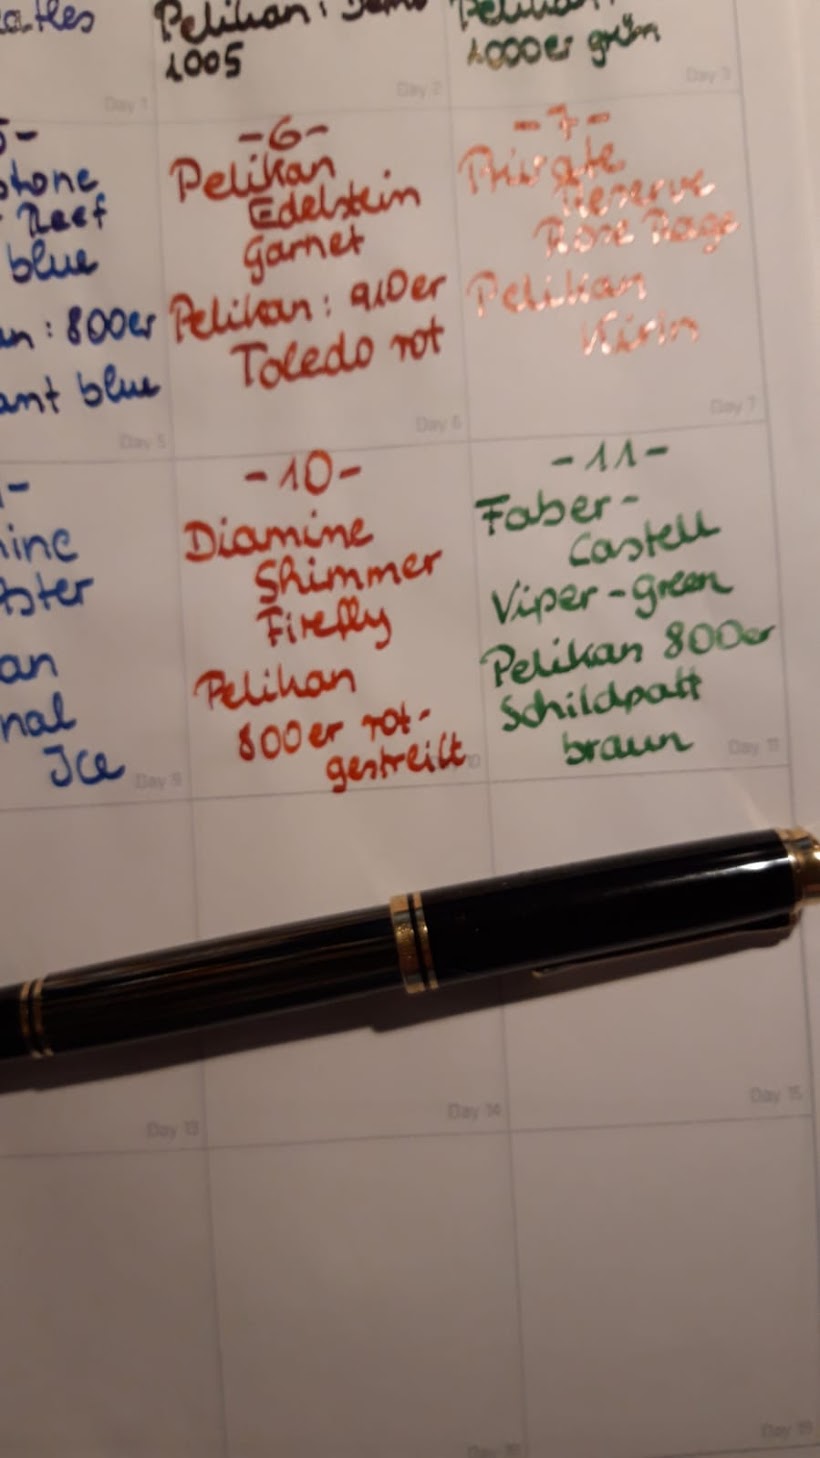 Pelikan: Demo
1005
Day 1
Day 2
1000er grün
Day 3
Reef
blue
800er
blue
Day 5
-6-
Pelikan
Edelstein
Garnet
Pelikan: 910er
Toledo rot
Day 6
-7-
Private
Reserve
Rose Rage
Pelikan
Kirin
Day 7
Ice
Day 9
-10-
Diamine
Shimmer
Firefly
Pelikan
800er rot-
gestreift
10
-11-
Faber-
Castell
Viper-green
Pelikan 800er
Schildpatt
braun
Day 11
Day 13
Day 14
Day 15
Day 18
Day 19